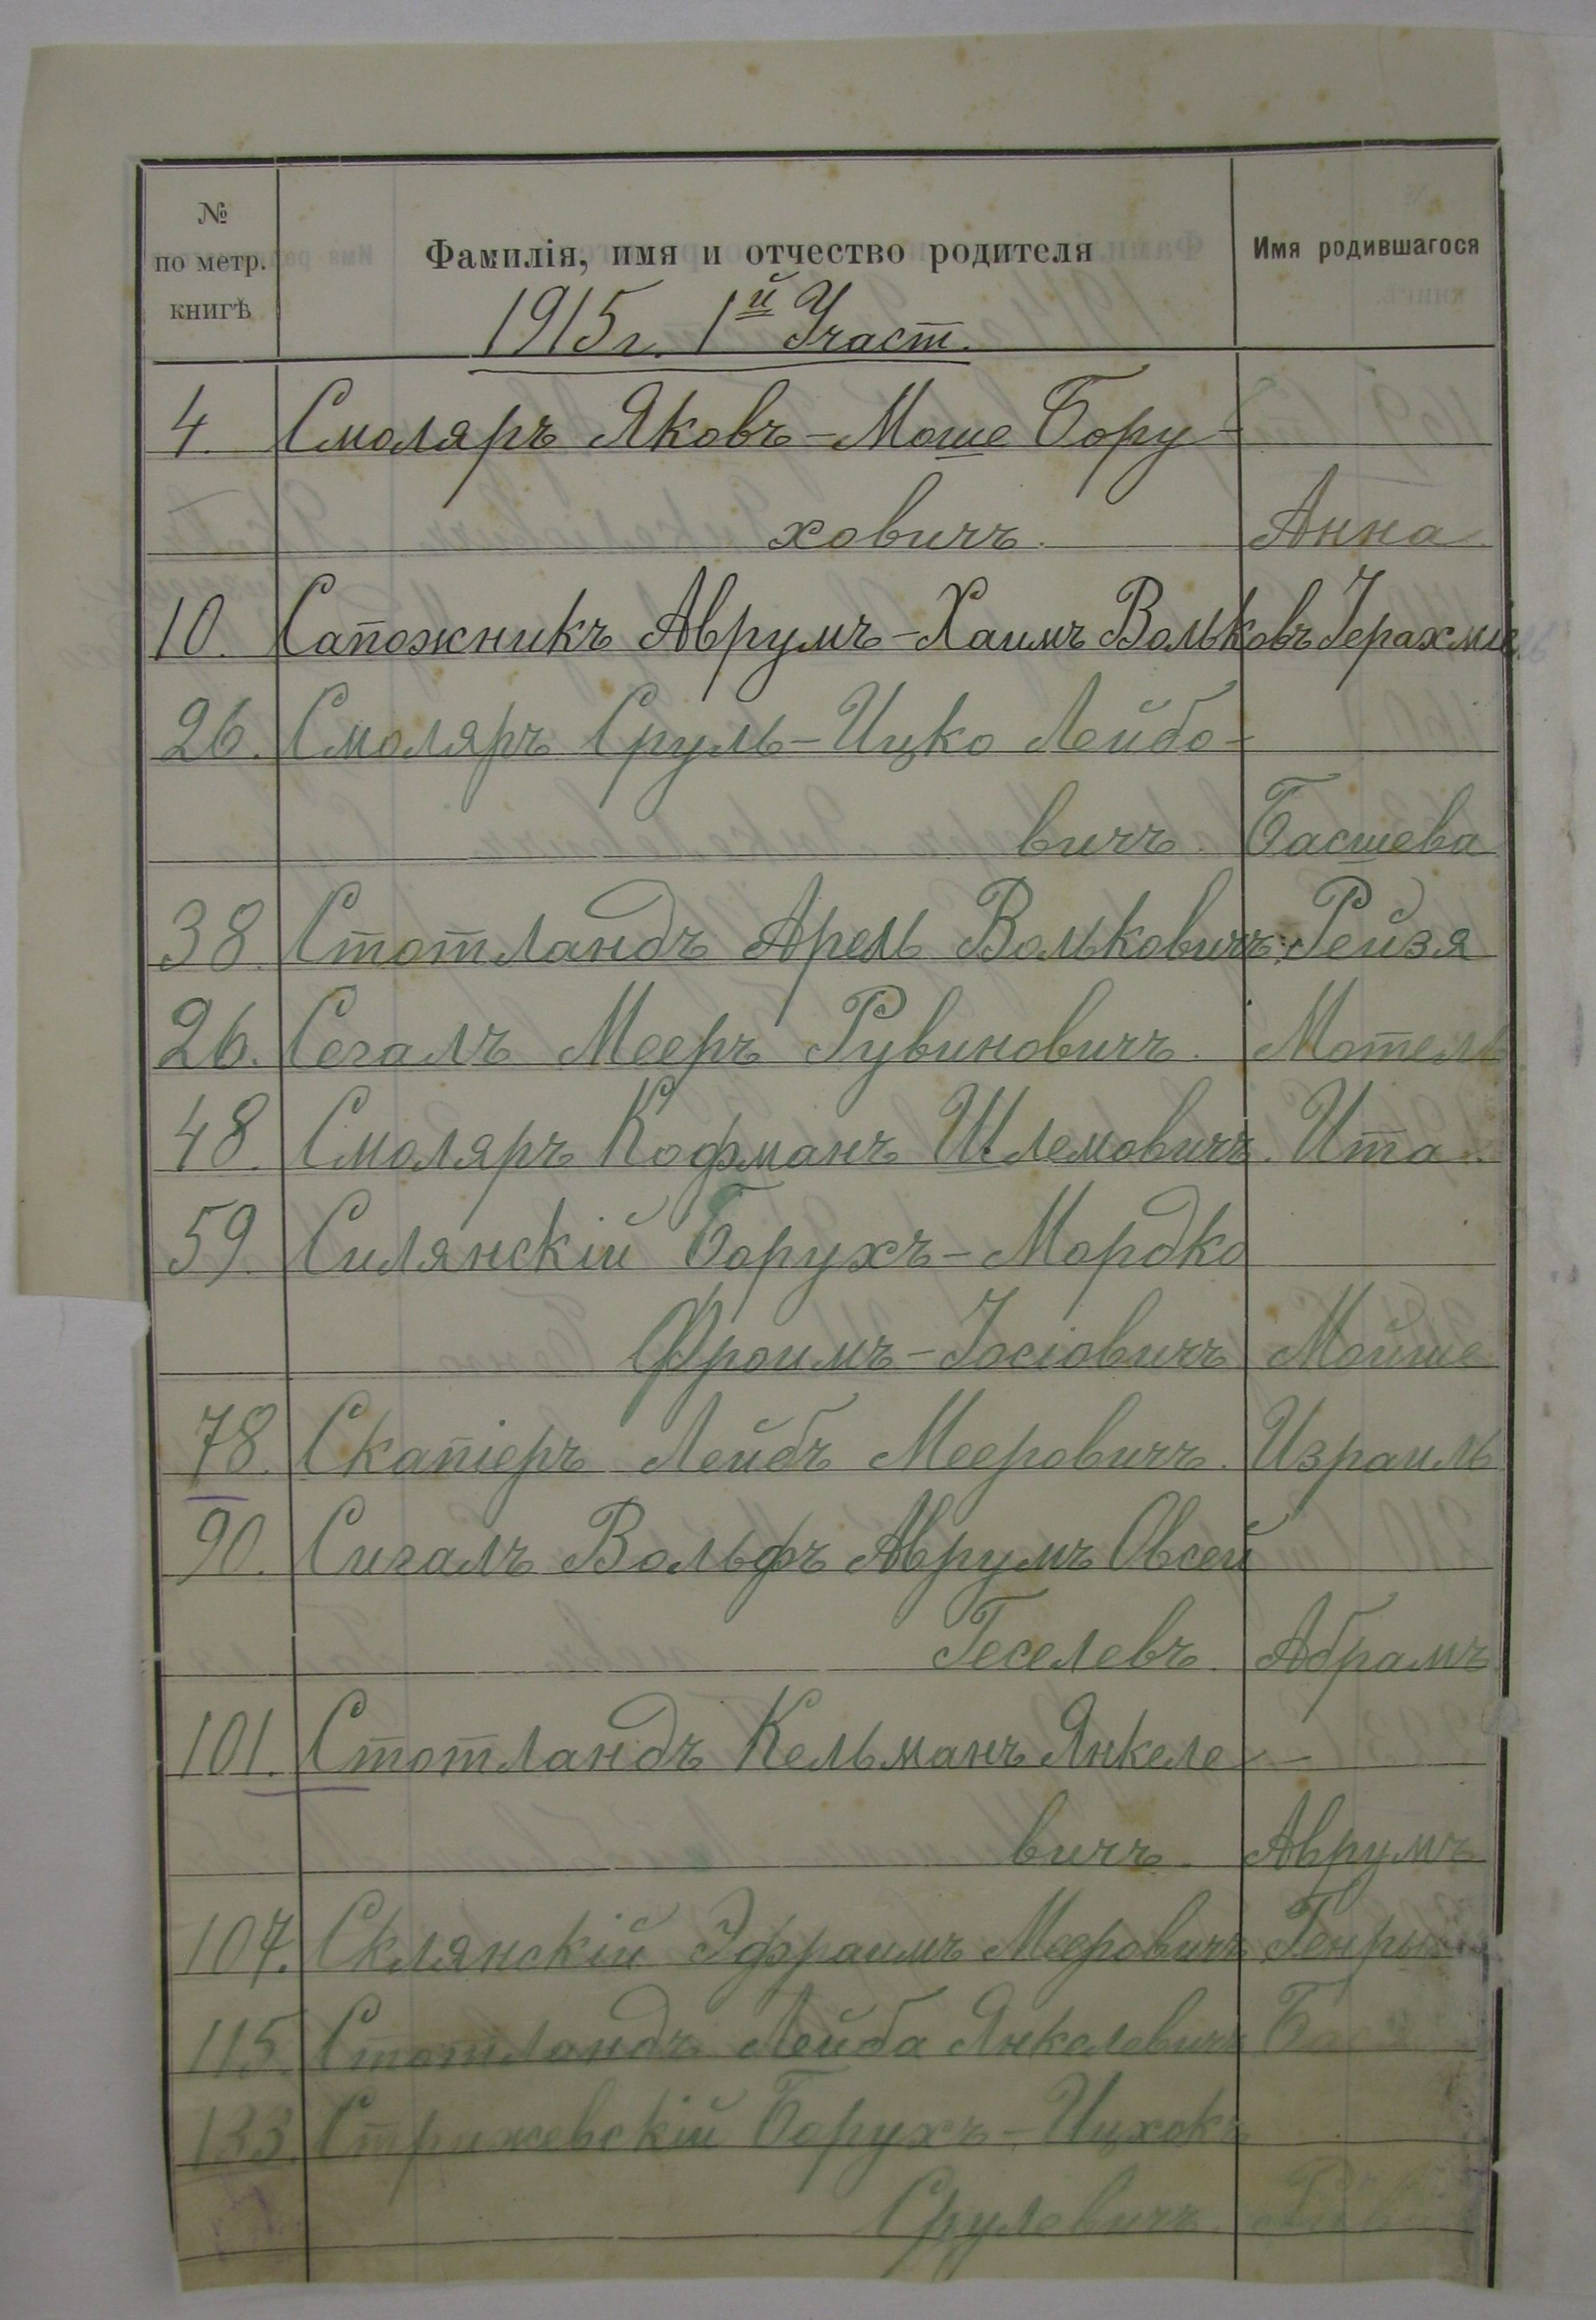 № по метр. книгѣ Фамилія, имя и отчество родителя Имя родившагося
1915г. 1й Участ.
4. Смоляръ Яковъ-Моше Бору-
ховичъ. Анна
10. Сапожникъ Аврумъ-Хаимъ Вольковъ Іерахміе
26. Смоляръ Сруль-Ицко Лейбо-
вичъ. Басшева
38. Стотландъ Арель Вольковичъ. Рейзя
26. Сегалъ Мееръ Рувиновичъ. Мотель
48. Смоляръ Кофманъ Шлемовичъ. Ита.
59. Силянскій Борухъ-Мордко
Фроимъ-Іосіовичъ Мойше
78. Скапіеръ Лейбъ Мееровичъ. Израиль
90. Сигалъ Вольфъ Аврумъ Овсей
Геселевъ. Абрамъ
101. Стотландъ Кельманъ Янкеле-
вичъ. Аврумъ
107. Склянскій Эфраимъ Мееровичъ
115. Стотландъ Лейба Янкелевичъ
133. Стрижевскій Борухъ-Ицхокъ
Сруловичъ.